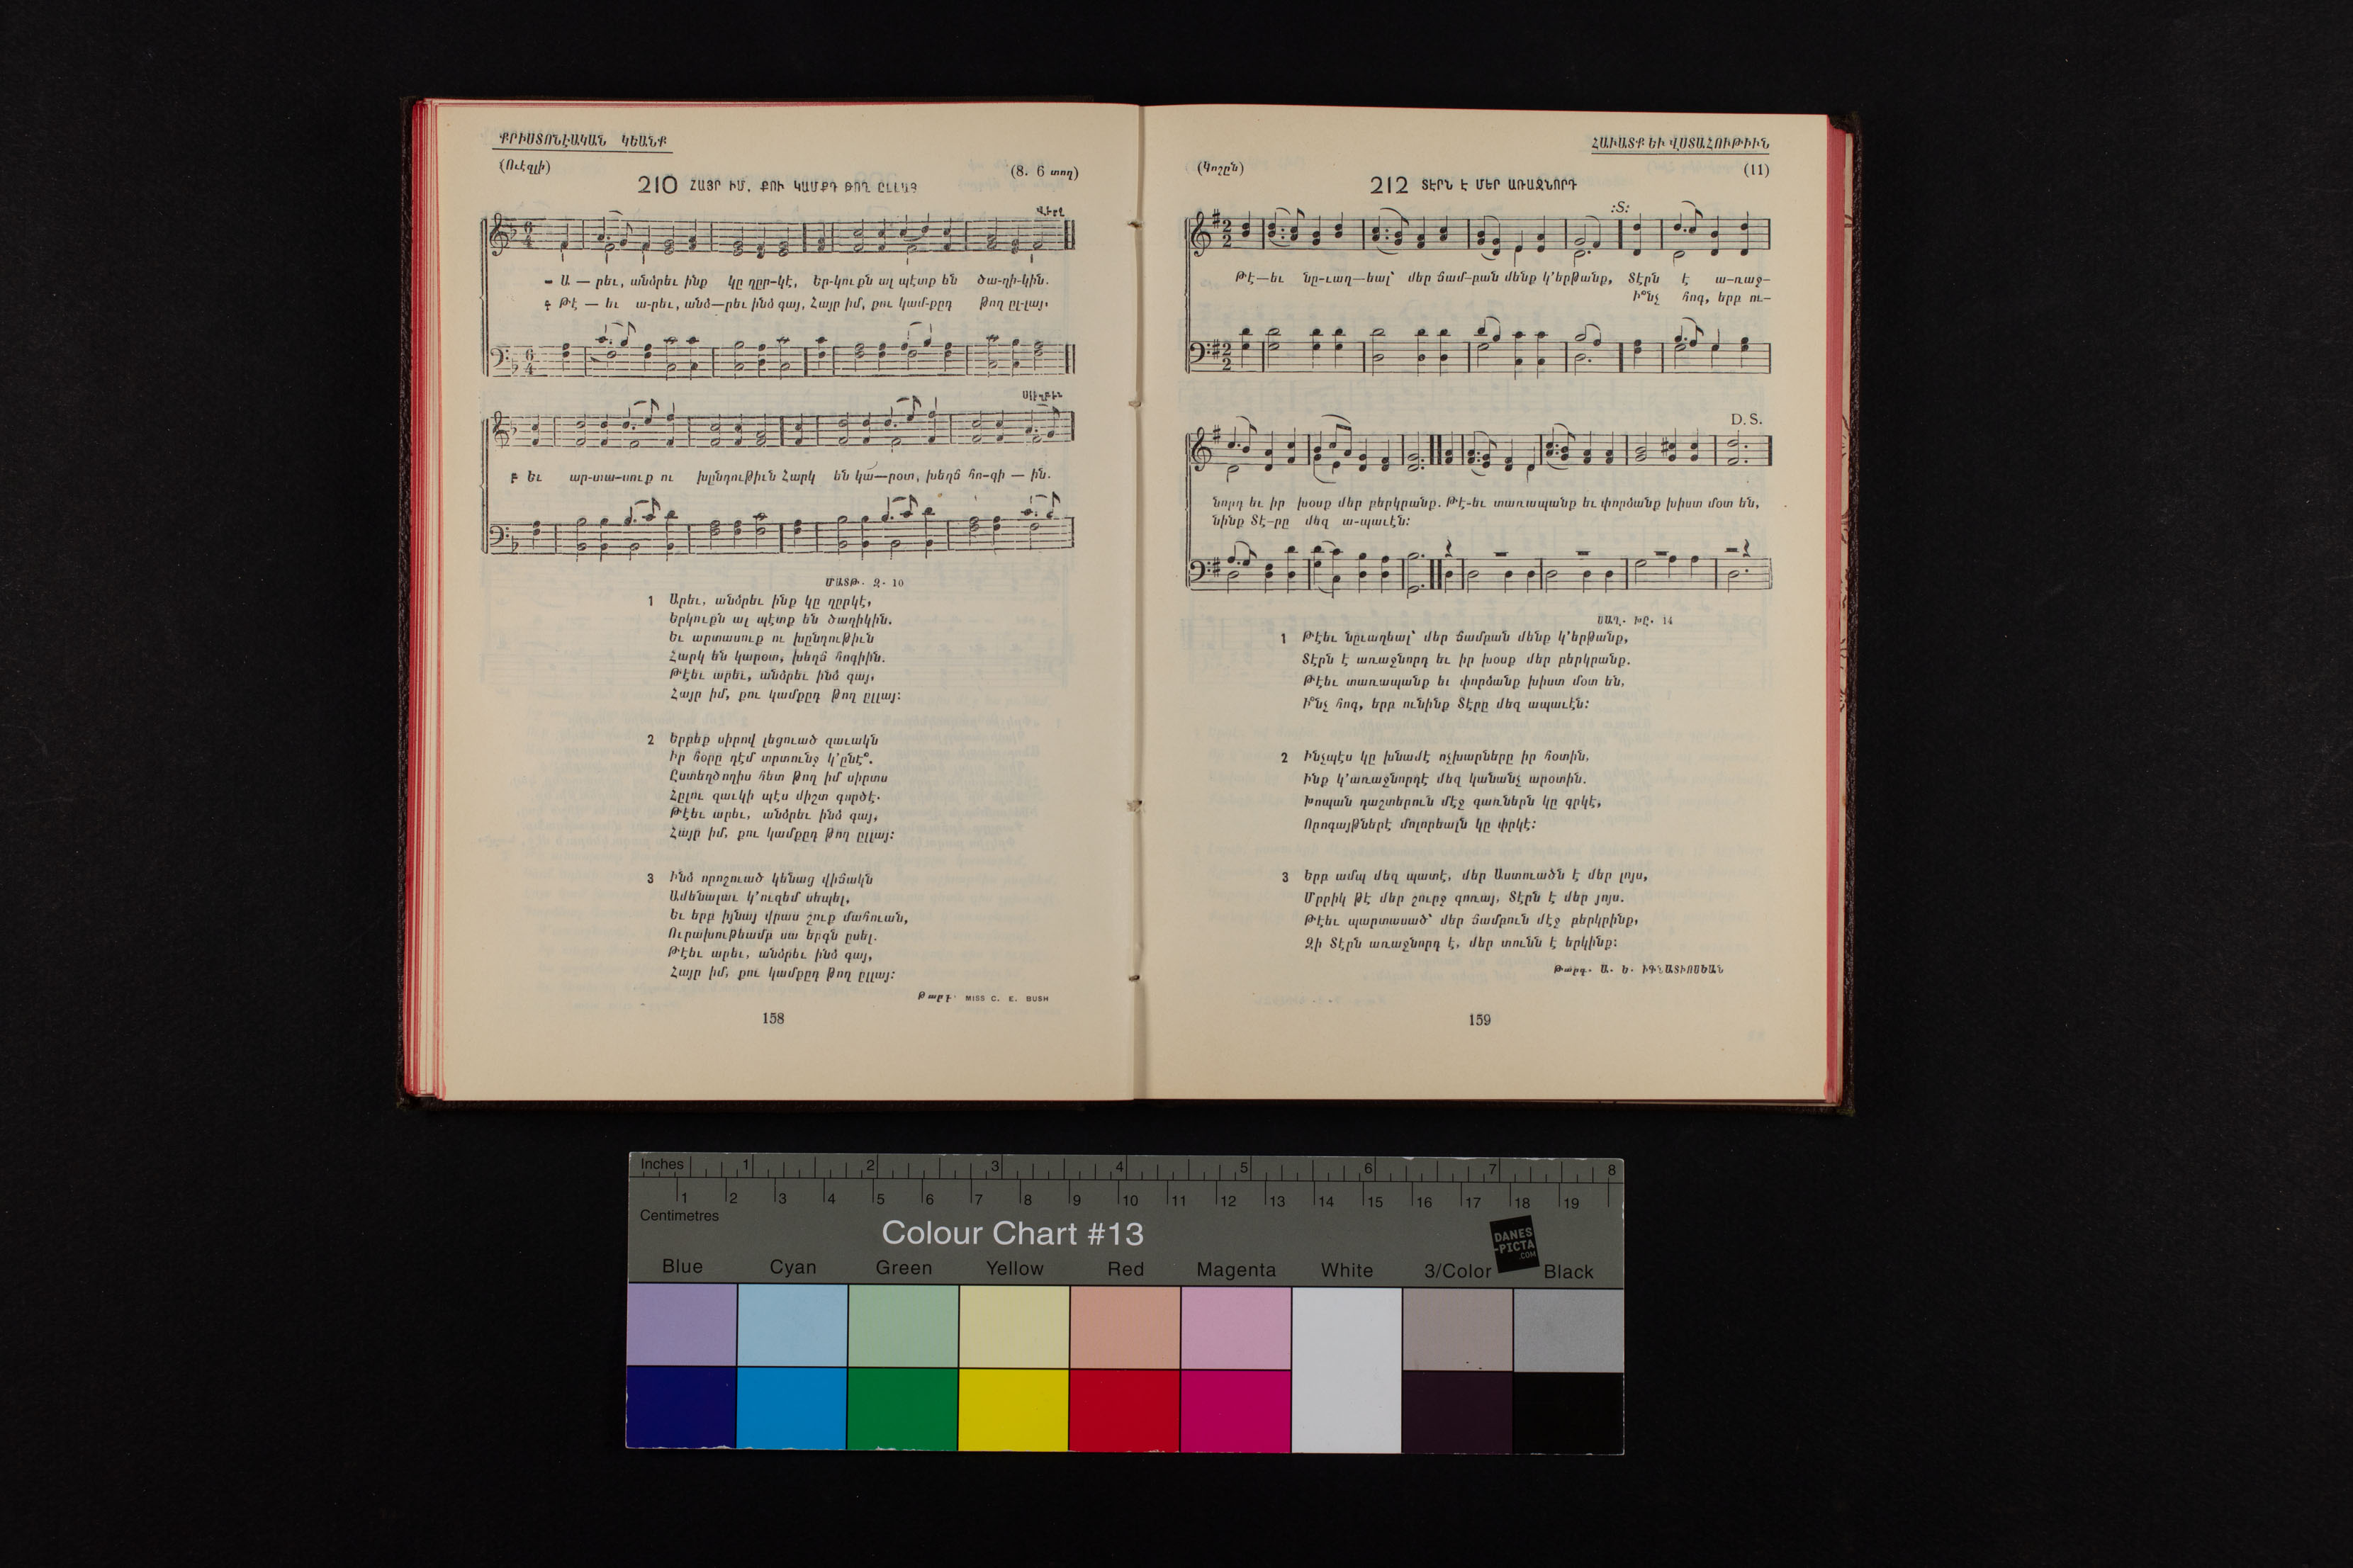 ՔՐԻՍՏՈՆԷԱԿԱՆ ԿԵԱՆՔ
(Ուէզլի)
(8. 6 տող)
210 ՀԱՅՐ ԻՄ, ՔՈՒ ԿԱՄՔԴ ԹՈՂ ԸԼԼԱՅ
Վերջ
Ա — րեւ, անձրեւ ինք կը ղըր-կէ, Եր-կու քն ալ պէտք են ծա-ղի-կին.
Թէ — եւ ա-րեւ, անձ—րեւ ինձ գայ, Հայր իմ, քու կամ-քըդ թող ըլ-լայ,
Սկիզբէն
Եւ ար-տա-սուք ու խընդութիւն Հարկ են կա—րօտ, խեղճ հո-գի — ին.
ՄԱՏԹ. Զ. 10
1 Արեւ, անձրեւ ինք կը ղըրկէ,
Երկուքն ալ պէտք են ծաղիկին.
Եւ արտասուք ու խընդութիւն
Հարկ են կարօտ, խեղճ հոգիին.
Թէեւ արեւ, անձրեւ ինձ գայ,
Հայր իմ, քու կամքըդ թող ըլլայ:
2 Երբեք սիրով լեցուած զաւակն
Իր հօրը դէմ տրտունջ կ՚ընէ՞.
Ըստեղծողիս հետ թող իմ սիրտս
Հըլու զաւկի պէս միշտ գործէ.
Թէեւ արեւ, անձրեւ ինձ գայ,
Հայր իմ, քու կամքըդ թող ըլլայ:
3 Ինձ որոշուած կենաց վիճակն
Ամենալաւ կ՚ուզեմ սեպել,
Եւ երբ իյնայ վրաս շուք մահուան,
Ուրախութեամբ սա երգն ըսել.
Թէեւ արեւ, անձրեւ ինձ գայ,
Հայր իմ, քու կամքըդ թող ըլլայ:
Թարգ. MISS C. E. BUSH
158
ՀԱՒԱՏՔ ԵՒ ՎՍՏԱՀՈՒԹԻՒՆ
(Կոշըն)
(11)
212 ՏԷՐՆ Է ՄԵՐ ԱՌԱՋՆՈՐԴ
:S:
Թէ—եւ նը-ւաղ—եալ՝ մեր ճամ-բան մենք կ՚երթանք, Տէրն է ա-ռաջ-
Ի՞նչ հոգ, երբ ու-
D. S.
նորդ եւ իր խօսք մեր բերկրանք. Թէ-եւ տառապանք եւ փորձանք խիստ մօտ են,
նինք Տէ-րը մեզ ա-պաւէն:
ՍԱՂ. ԽԸ. 14
1 Թէեւ նըւաղեալ՝ մեր ճամբան մենք կ՚երթանք,
Տէրն է առաջնորդ եւ իր խօսք մեր բերկրանք.
Թէեւ տառապանք եւ փորձանք խիստ մօտ են,
Ի՞նչ հոգ, երբ ունինք Տէրը մեզ ապաւէն:
2 Ինչպէս կը խնամէ ոչխարները իր հօտին,
Ինք կ՚առաջնորդէ մեզ կանանչ արօտին.
Խոպան դաշտերուն մէջ գառներն կը գրկէ,
Որոգայթներէ մոլորեալն կը փրկէ:
3 Երբ ամպ մեզ պատէ, մեր Աստուածն է մեր լոյս,
Մրրիկ թէ մեր շուրջ գոռայ, Տէրն է մեր յոյս.
Թէեւ պարտասած՝ մեր ճամբուն մէջ բերկրինք,
Զի Տէրն առաջնորդ է, մեր տունն է երկինք:
Թարգ. Ա. Ե. ԻԳՆԱՏԻՈՍԵԱՆ
159
Inches 1 2 3 4 5 6 7 8
1 2 3 4 5 6 7 8 9 10 11 12 13 14 15 16 17 18 19
Centimetres
Colour Chart #13
DANES
-PICTA
.COM
Blue Cyan Green Yellow Red Magenta White 3/Color Black